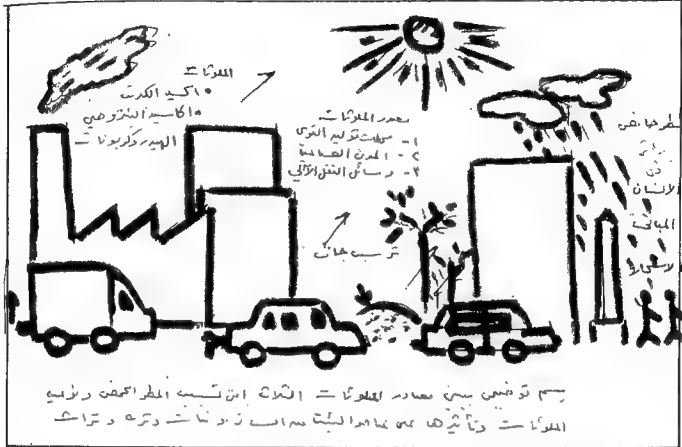 الملوثات
• اكسيد الكبريت
• اكاسيد النتروجين
الهيدروكربونات
مصدر الملوثات
١- محطات توليد القوى
٢- المدن الصناعية
٣- وسائل النقل الآلي
ترسيب جاف
مطر حامضي
الانسان
المباني
الاشجار
رسم توضيحي يبين مصادر الملوثات الثلاث التي تسبب المطر الحمضي ونوعية
الملوثات وتأثيرها على عناصر البيئة من انسان ونبات وتربة وتراث